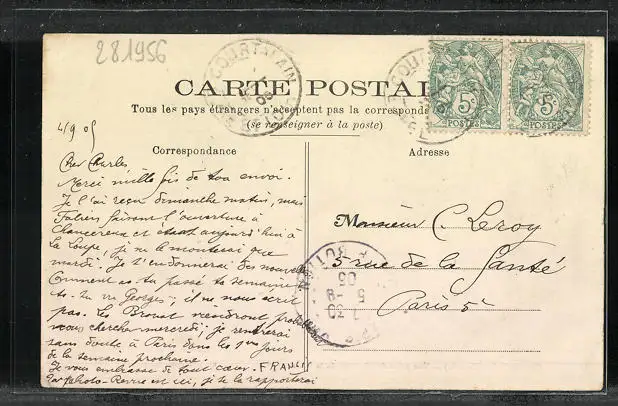 281956
COURTALAIN
CARTE POSTALE
Tous les pays étrangers n'acceptent pas la correspondance
(se renseigner à la poste)
5c 5c
POSTES POSTES
Correspondance
Adresse
4/9 05
Cher Charles
Merci mille fois de ton envoi.
Je l'ai reçu dimanche matin, mais
faisant l'ouverture à
et étant aujourd'hui à
La Loupe, je ne le monterai que
mardi. Je t'en donnerai des nouvelles
Comment as tu passé ta semaine
As-tu vu Georges; il ne nous écrit
pas. Les viendront
nous chercher mercredi; je rentrerai
sans doute à Paris dans les 1ers jours
de la semaine prochaine.
Je vous embrasse de tout cœur. FRANCIS
Photo-Revue est ici, je te la rapporterai
Monsieur C. Leroy
5 rue de la Santé
Paris 5e
7 30
5 - 9
05